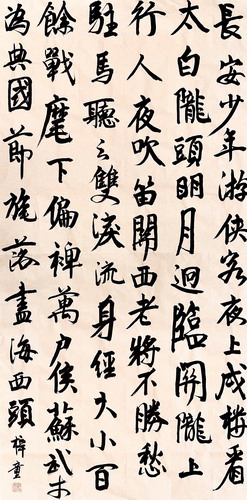 長安少年游俠客夜上戍樓看
太白隴頭明月迥臨關隴上
行人夜吹笛關西老將不勝愁
駐馬聽之雙淚流身經大小百
餘戰麾下偏裨萬戶侯蘇武才
為典國節旄落盡海西頭